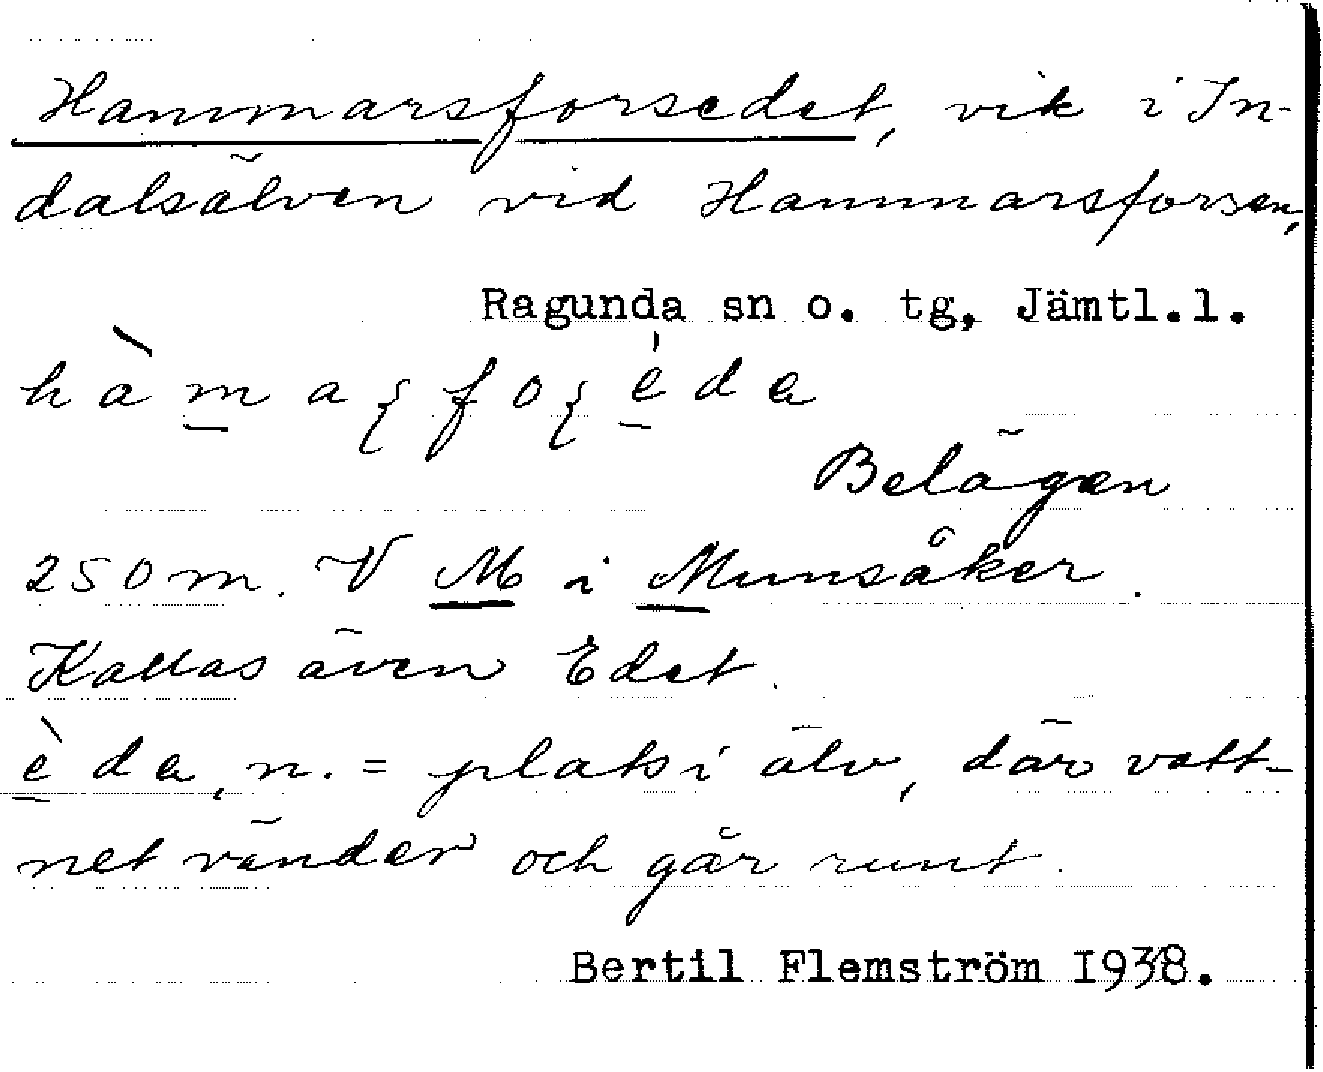 Hammarsforsedet, vik i In-
dalsälven vid Hammarsforsen,
Ragunda sn o. tg, Jämtl.l.
Belägen
250 m. V M i Munsåker.
Kallas även Edet.
èda, n. = plats i älv, där vatt-
net vänder och går runt.
Bertil Flemström 1938.